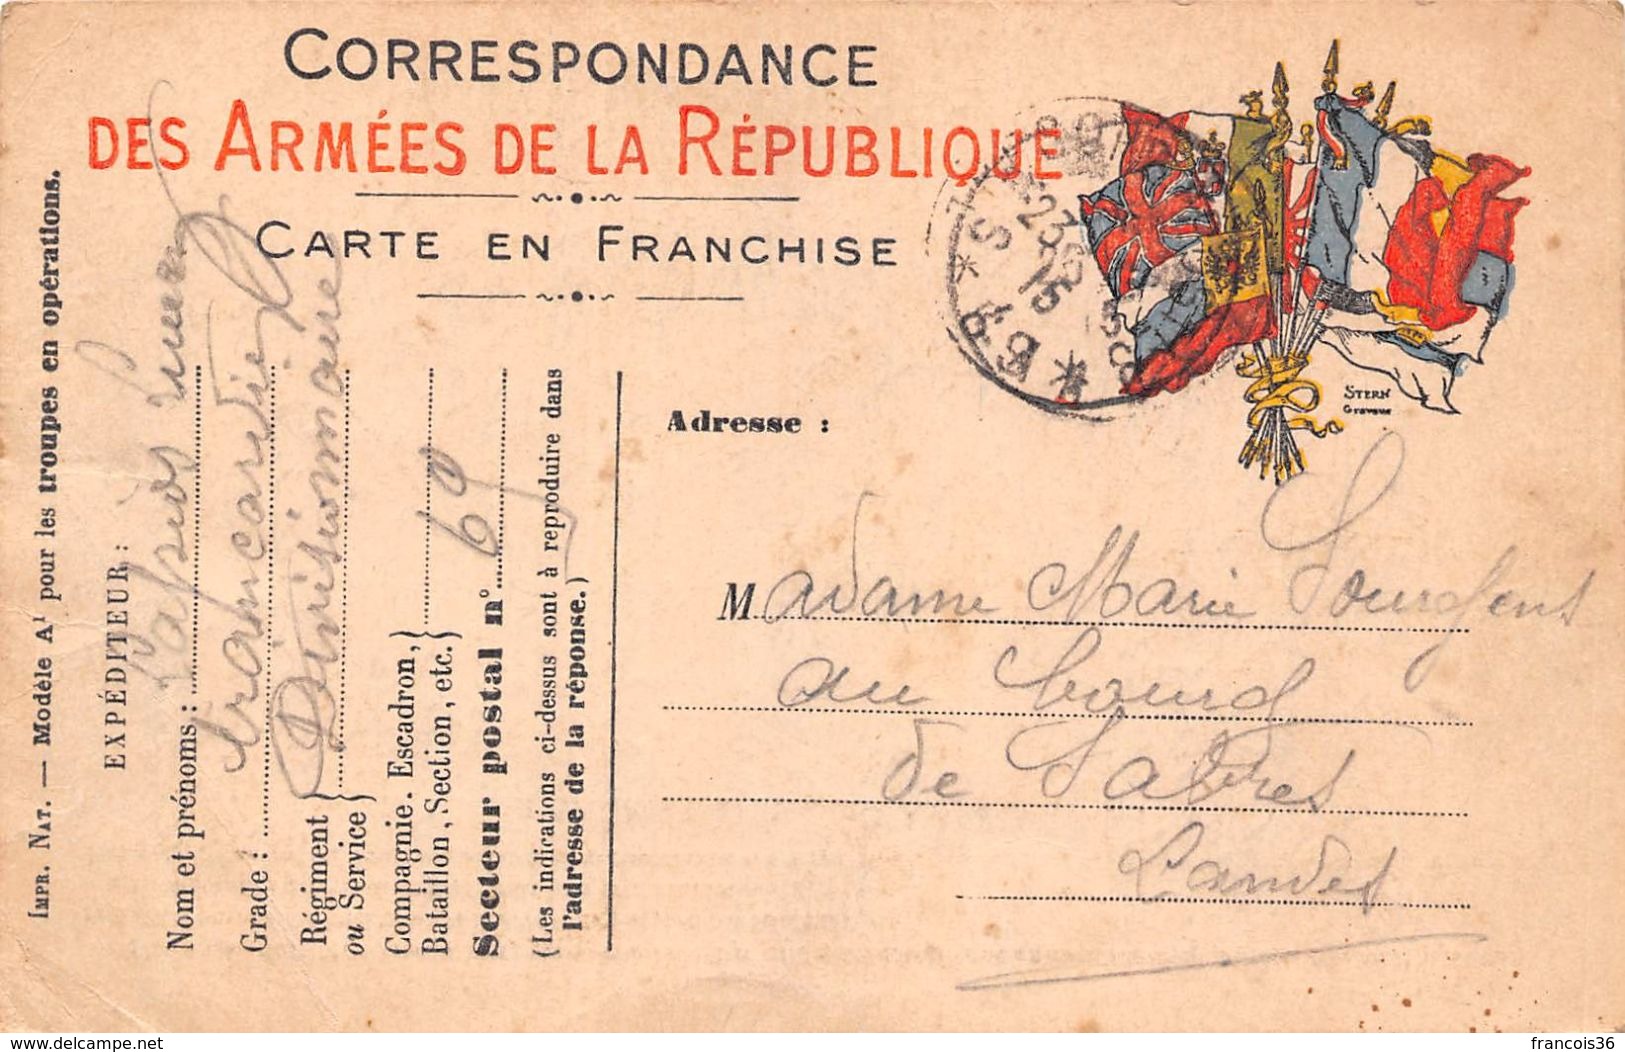 CORRESPONDANCE
DES ARMÉES DE LA RÉPUBLIQUE
CARTE EN FRANCHISE
IMPR. NAT. — Modèle A1 pour les troupes en opérations.
EXPÉDITEUR:
Nom et prénoms:
Grade: brancardier
Régiment
ou Service } Divisionnaire
Compagnie, Escadron,
Bataillon, Section, etc. }
Secteur postal n° 69
(Les indications ci-dessus sont à reproduire dans
l'adresse de la réponse.)
STERN
Graveur
Adresse :
Madame Marie Sourgens
au bourg
de Sabres
Landes
delcampe.net
francois36